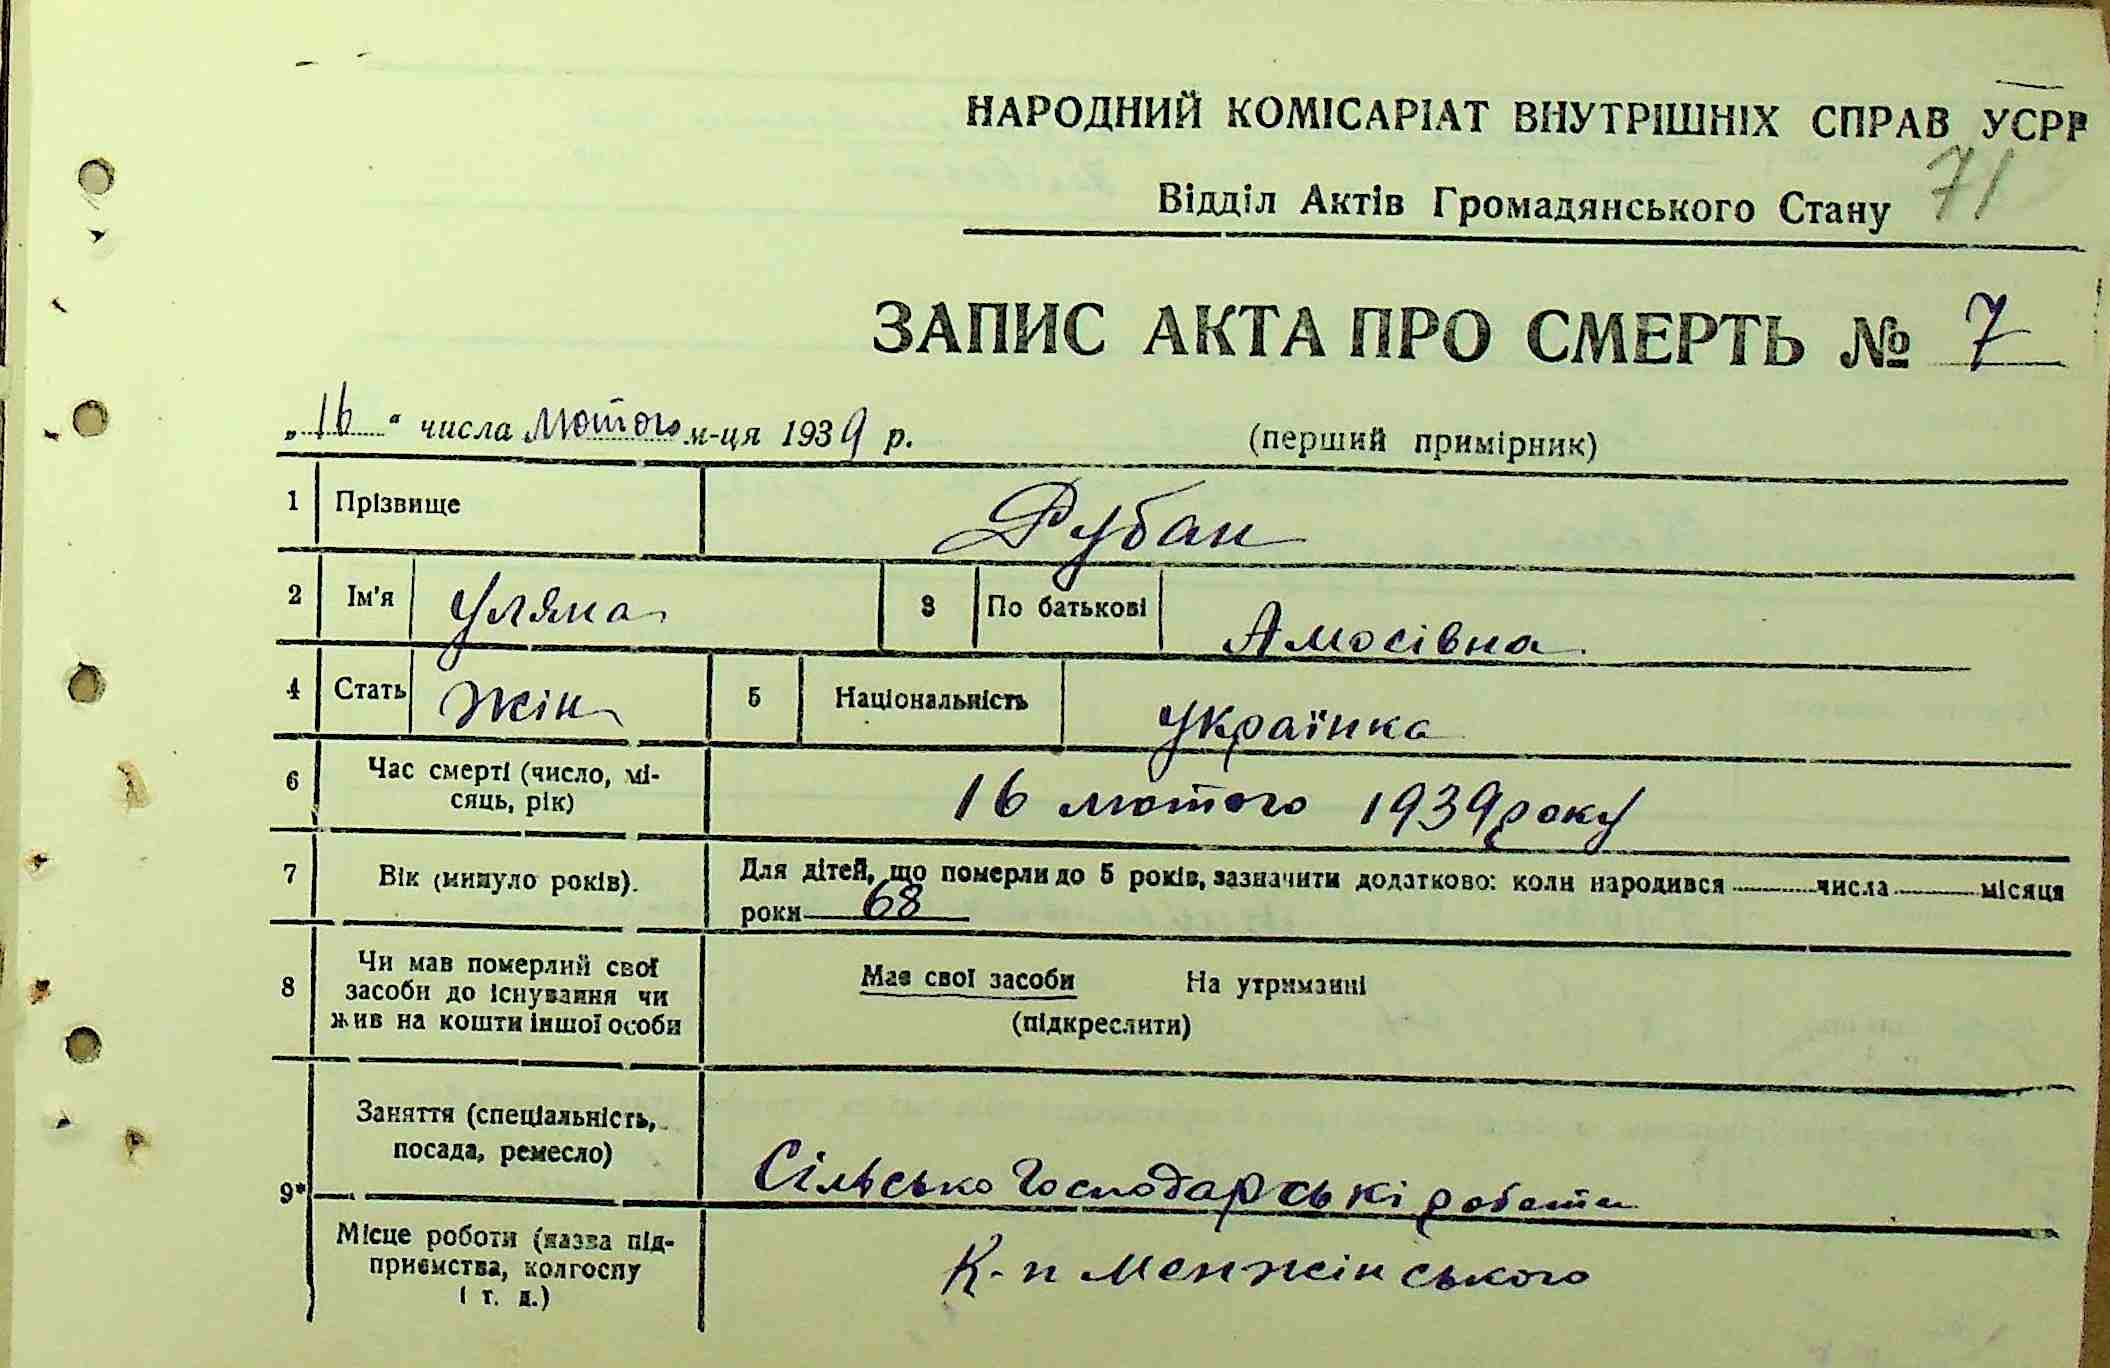 НАРОДНИЙ КОМІСАРІАТ ВНУТРІШНІХ СПРАВ УСРР
71
Відділ Актів Громадянського Стану
ЗАПИС АКТА ПРО СМЕРТЬ № 7
„16“ числа Лютого м-ця 1939 р. (перший примірник)
1 Прізвище Рубан
2 Ім'я Уляна 3 По батькові Амосівна
4 Стать жін 5 Національність українка
6 Час смерті (число, мі-
сяць, рік) 16 лютого 1939 року
7 Вік (минуло років). Для дітей, що померли до 5 років, зазначити додатково: коли народився числа місяця
роки 68
8 Чи мав померлий свої
засоби до існування чи
жив на кошти іншої особи
Мав свої засоби На утриманні
(підкреслити)
9* Заняття (спеціальність,
посада, ремесло) Сільсько господарські роботи
Місце роботи (назва під-
приємства, колгоспу
і т. д.) К-п Менжінського